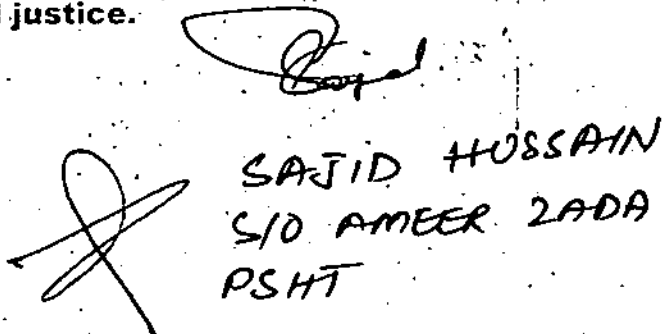 justice.
Sajid
SAJID HUSSAIN
S/O AMEER ZADA
PSHT